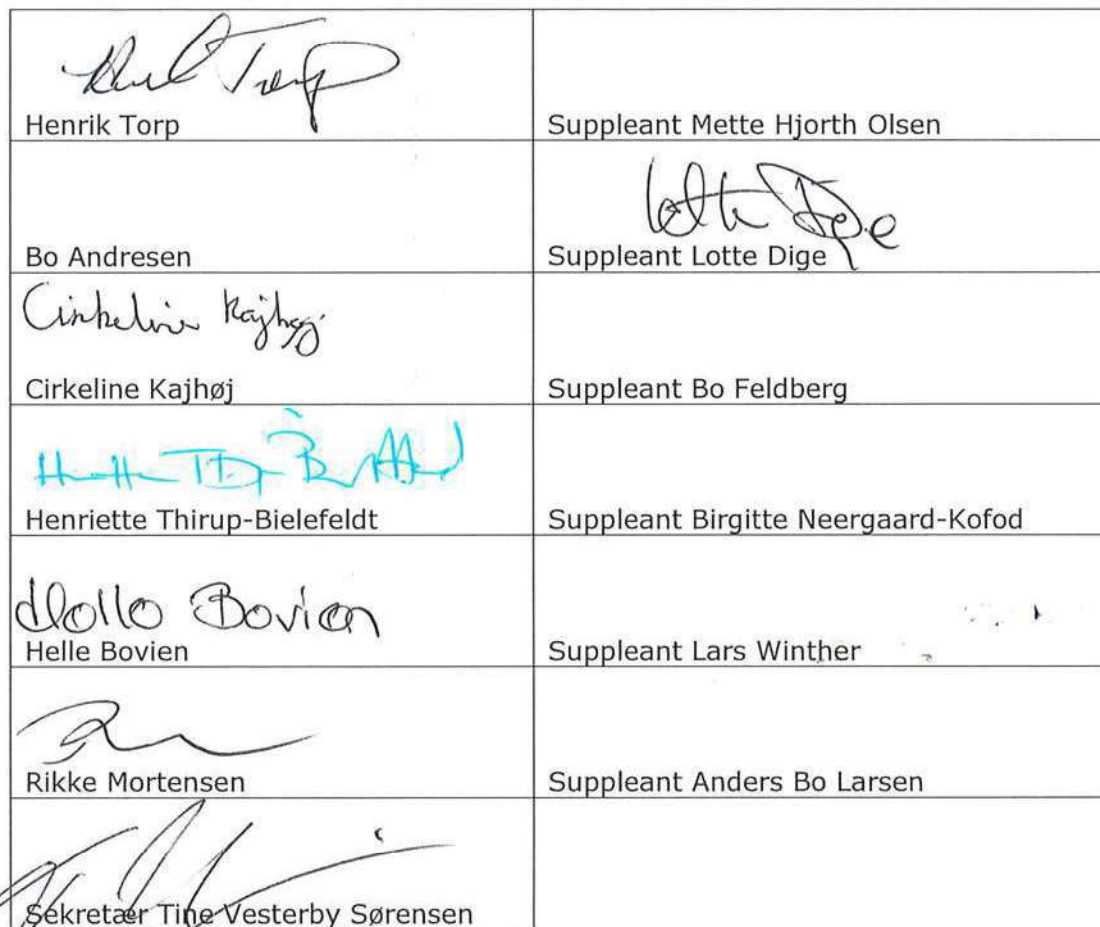 Henrik Torp
Suppleant Mette Hjorth Olsen
Lotte Dige
Bo Andresen
Suppleant Lotte Dige
Cirkeline Kajhøj
Cirkeline Kajhøj
Suppleant Bo Feldberg
Henriette Thirup-Bielefeldt
Suppleant Birgitte Neergaard-Kofod
Helle Bovien
Helle Bovien
Suppleant Lars Winther
Rikke Mortensen
Suppleant Anders Bo Larsen
Sekretær Tine Vesterby Sørensen